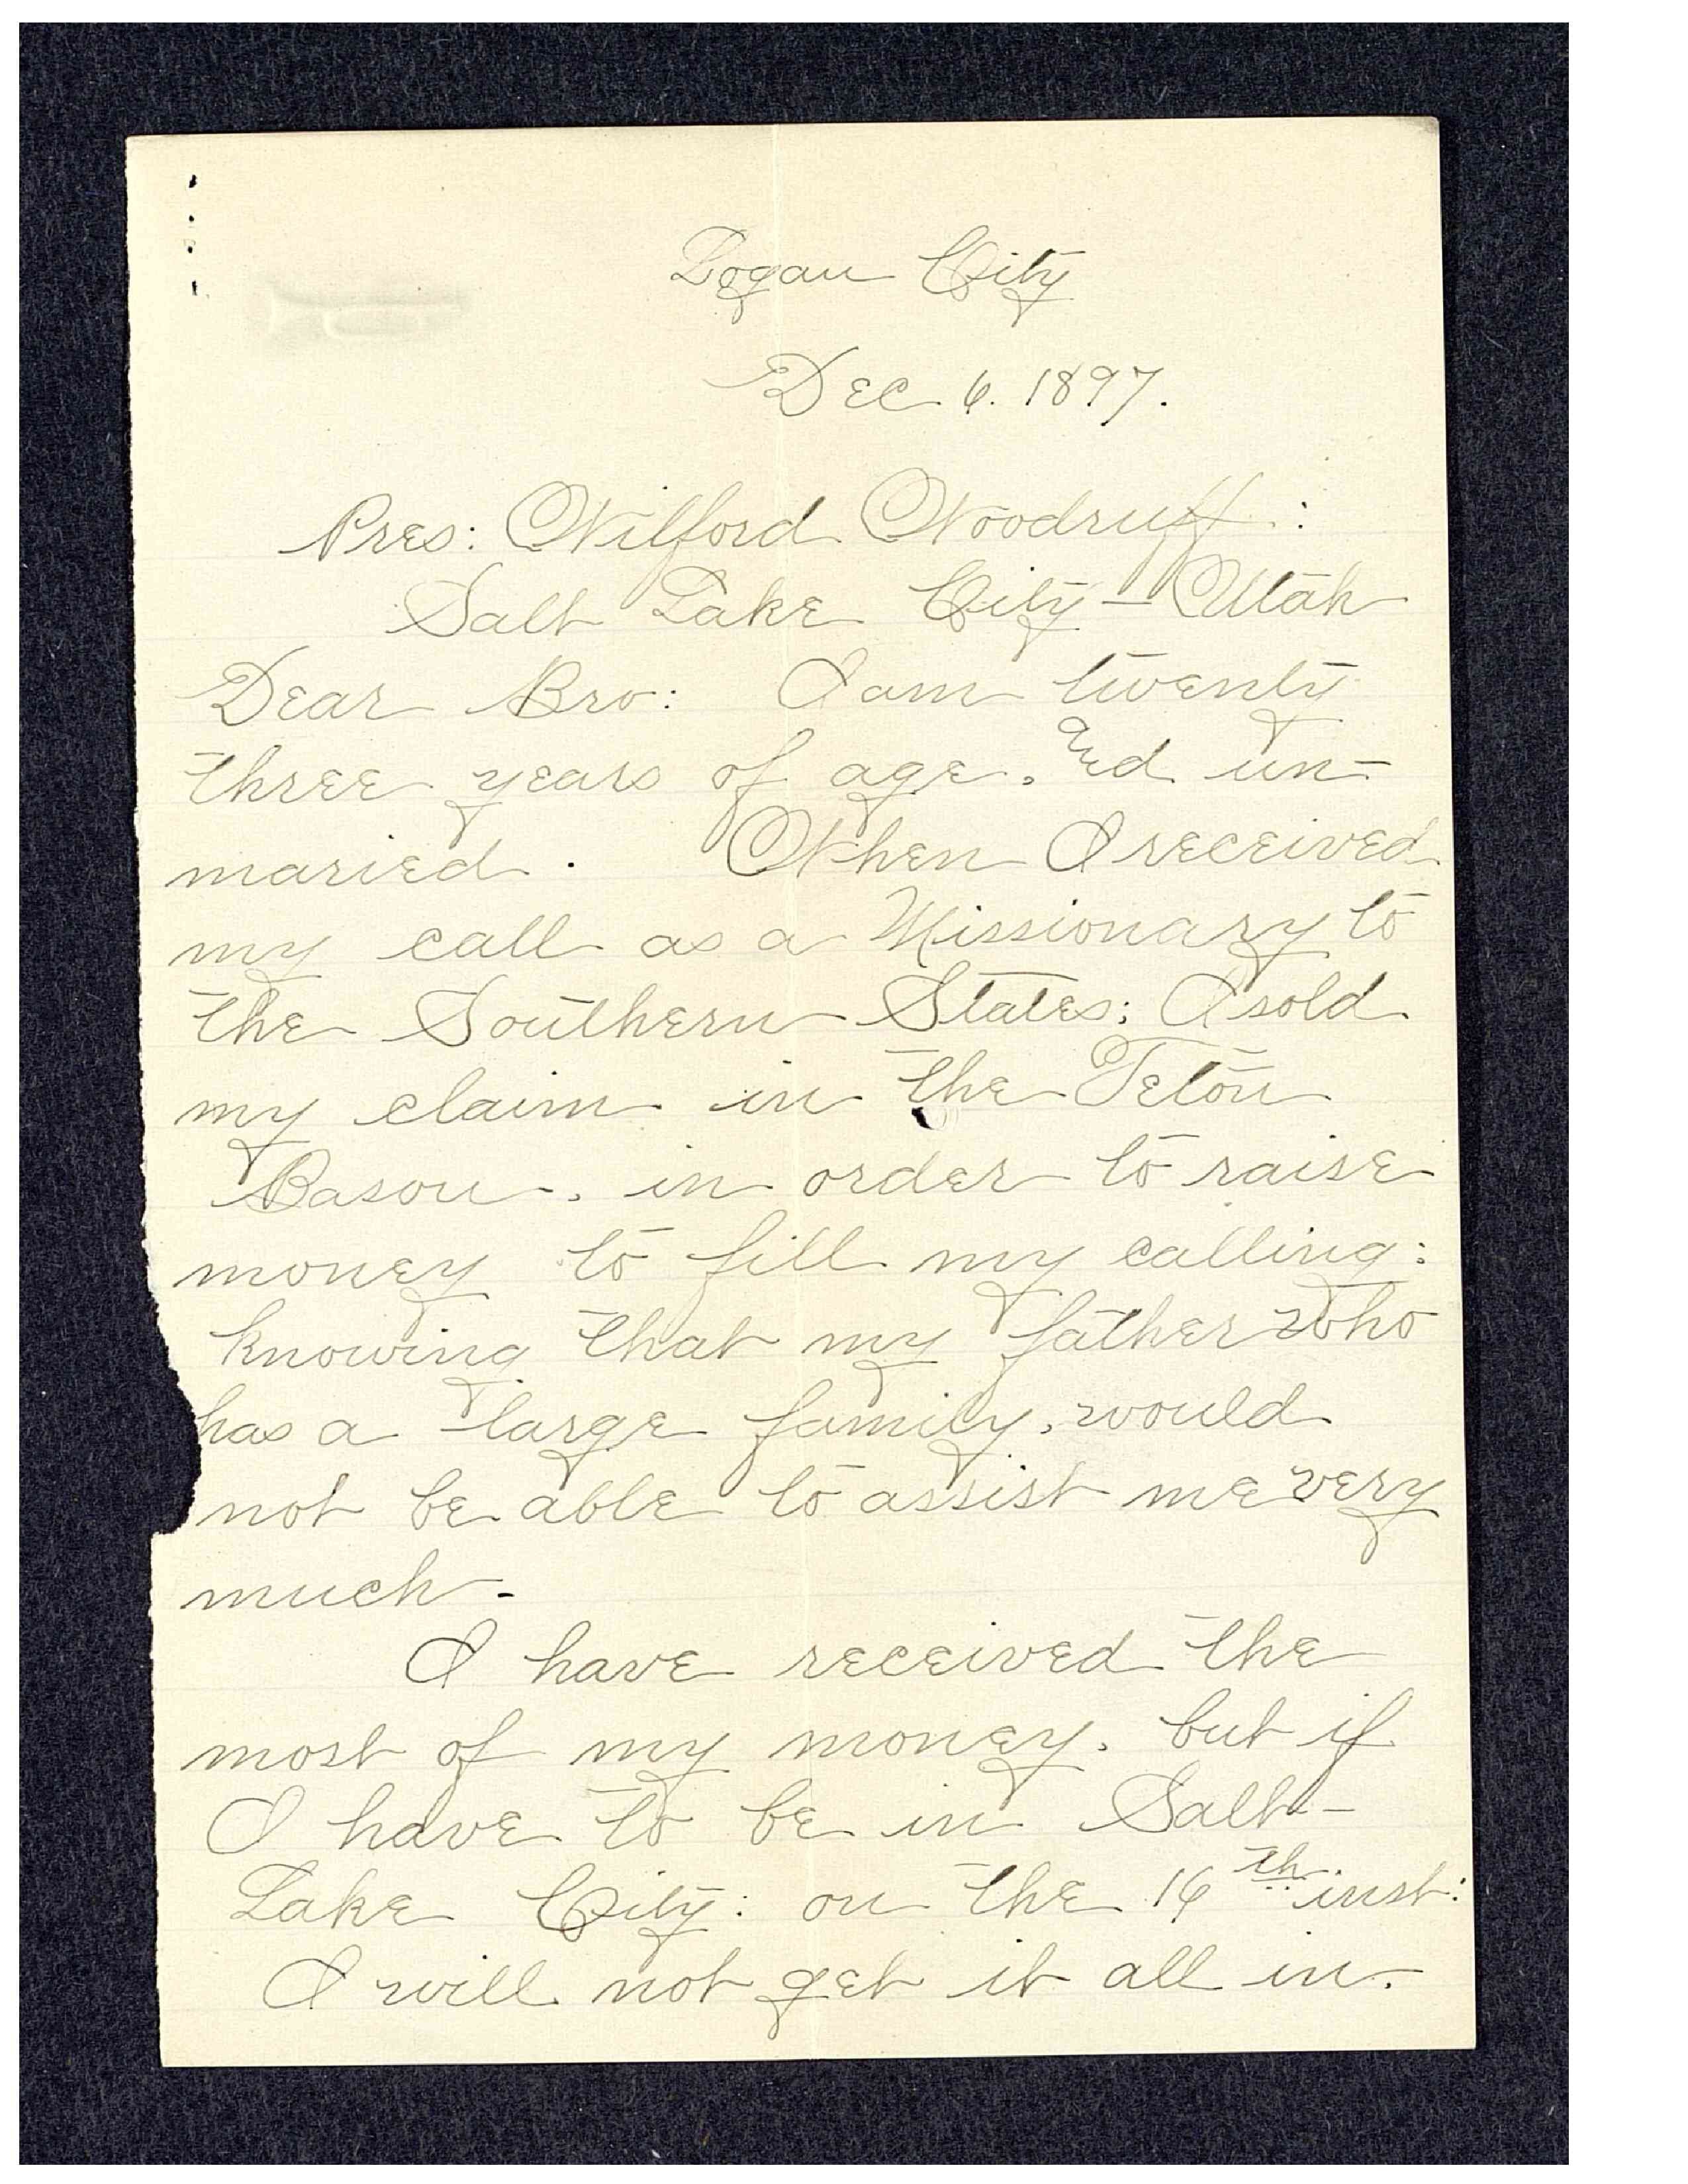 Logan City
Dec 6. 1897.
Pres: Wilford Woodruff:
Salt Lake City - Utah
Dear Bro: I am twenty
three years of age. and un-
maried. When I received
my call as a Missionary to
the Southern States; I sold
my claim in the Teton
Bason, in order to raise
money to fill my calling:
knowing that my father who
has a large family, would
not be able to assist me very
much.
I have received the
most of my money. but if
I have to be in Salt-
Lake City: on the 16th inst:
I will not get it all in.